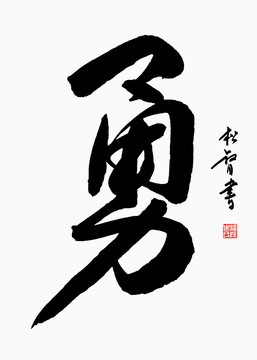 勇
松智書